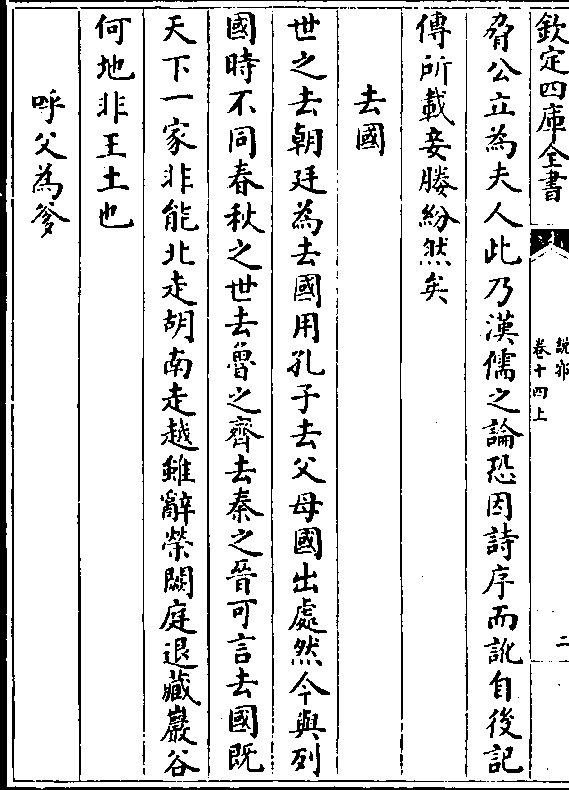 欽定四庫全書
說郛
卷十四上
二
脅公立為夫人此乃漢儒之論恐因詩序而訛自後記
傳所載妾媵紛然矣
去國
世之去朝廷為去國用孔子去父母國出處然今與列
國時不同春秋之世去魯之齊去秦之晉可言去國既
天下一家非能北走胡南走越雖辭榮闕庭退藏巖谷
何地非王土也
呼父為爹